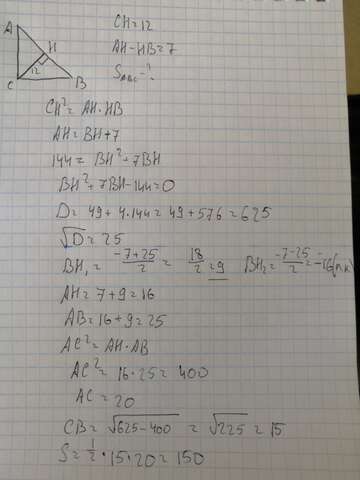 A
H
12
C
B
CH=12
AH-HB=7
S_ABC-?
CH²=AH·HB
AH=BH+7
144=BH²+7BH
BH²+7BH-144=0
D=49+4·144=49+576=625
√D=25
BH₁=(-7+25)/2=18/2=9 BH₂=(-7-25)/2=-16(п.к)
AH=7+9=16
AB=16+9=25
AC²=AH·AB
AC²=16·25=400
AC=20
CB=√625-400=√225=15
S=1/2·15·20=150